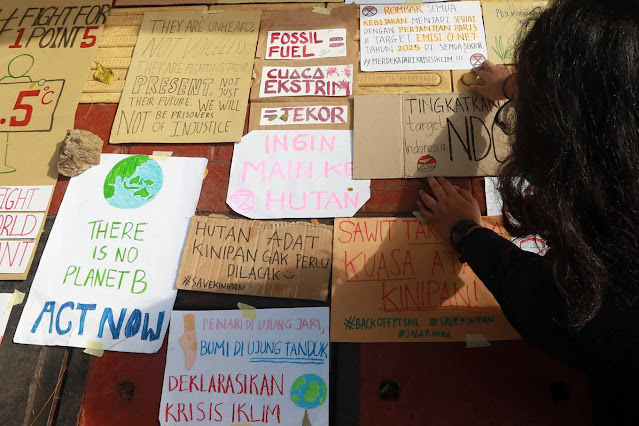 #FIGHT FOR
1 POINT 5
.5°C
FIGHT
WORLD
POINT
THEY ARE UNHEARD,
THEY ARE FIGHTING THEIR
PRESENT, NOT JUST
THEIR FUTURE. WE WILL
NOT BE PRISONERS
OF INJUSTICE
FOSSIL
FUEL
CUACA
EKSTRIM
=TEKOR
INGIN
MAIN KE
HUTAN
ROMBAK SEMUA
KEBIJAKAN MENJADI SESUAI
DENGAN PERJANJIAN PARIS
& TARGET EMISI 0 NET
TAHUN 2025 DI SEMUA SEKTOR
#MERDEKADARI KRISIS IKLIM
TINGKATKAN
target
Indonesia
NDC
THERE IS NO
PLANET B
ACT NOW
HUTAN ADAT
KINIPAN GAK PERLU
DILACAK
#SAVEKINIPAN
SAWIT
KUASA ATAS
KINIPAN!
#BACKOFFPTSML #SAVEKINIPAN
@JAGARUARA
PENARI DI UJUNG JARI,
BUMI DI UJUNG TANDUK
DEKLARASIKAN
KRISIS IKLIM